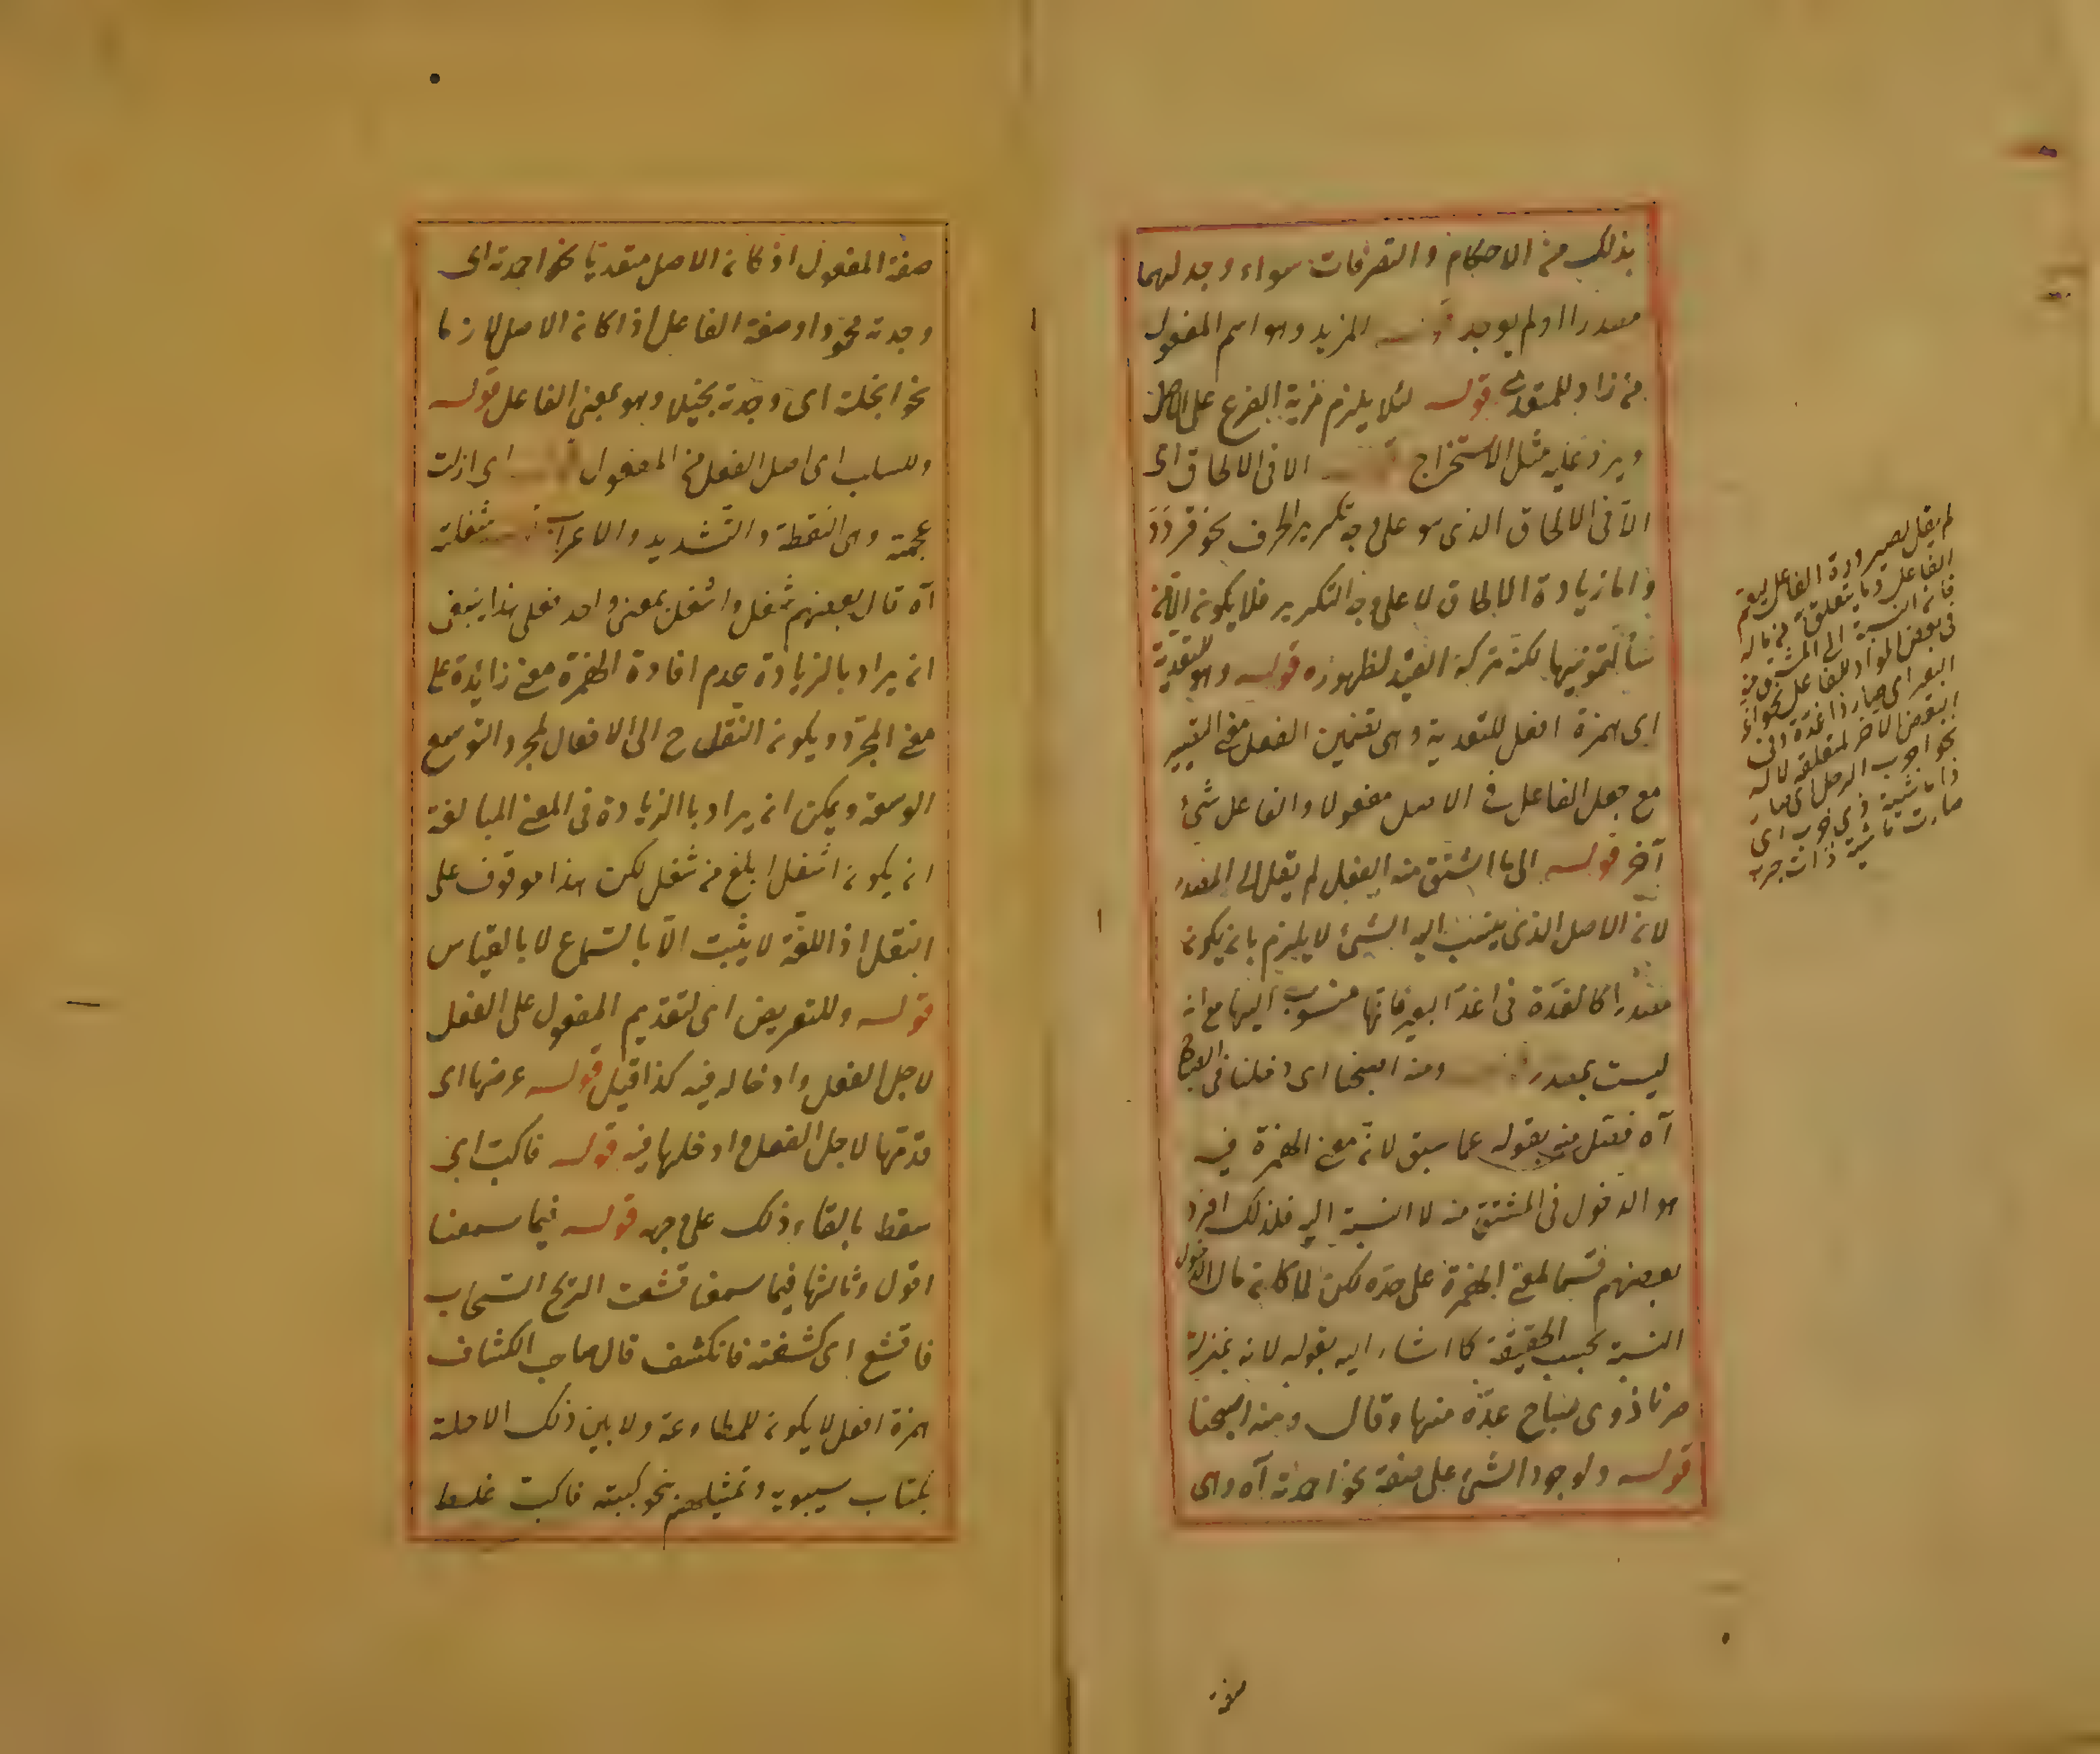 بذلك من الاحكام والتصرفات سواء وجد لهما
مصدرا اولم يوجد المزيد وهو اسم المفعول
من زاد للمتعدى قوله لئلا يلزم مزية الفرع على الاصل
ويرد عليه مثل الاستخراج الا فى الالحاق اى
الا فى الالحاق الذى هو على وجه تكرير الحرف نحو قردد
واما زيادة الالحاق لا على وجه التكرير فلا يكون الا من
سألتمونيها لكنه ترك القيد لظهوره قوله وهو للتعدية
اى همزة افعل للتعدية وهى تضمين الفعل معنى التصيير
مع جعل الفاعل فى الاصل مفعولا والفاعل شئ
آخر قوله الى ما اشتق منه الفعل لم يقل الى المصدر
لان الاصل الذى ينسب اليه الشئ لا يلزم بان يكون
مصدرا كالغدة فى اغد البعير فانها منسوب اليها مع انه
ليست بمصدر ومنه اصبحنا اى دخلنا فى الصباح
آه فصل منه بقوله عما سبق لان معنى الهمزة فيه
هو الدخول فى المشتق منه لا النسبة اليه فلذلك افرد
بعضهم قسما لمعنى الهمزة على حده لكن لما كان مآل الدخول
النسبة بحسب الحقيقة كما اشار اليه بقوله لانه بمنزلة
صرنا ذوى صباح عده منها وقال ومنه اصبحنا
قوله ولوجود الشئ على صفة نحو احمدته آه وهى
لم يقل لصيرورة الفاعل ليعم
الفاعل وما يتعلق به
فان النسبة الى المشتق منه
فى بعض المواد للفاعل نحو اغد
البعير اى صار ذا غدة وفى
البعض الآخر لمتعلقه لا له
نحو اجرب الرجل اى صار
ذا ماشية ذى جرب اى
صارت ماشيته ذات جرب
صفة
صفة المفعول اذ كان الاصل متعديا نحو احمدته اى
وجدته محمودا وصفة الفاعل اذا كان الاصل لازما
نحو ابخلته اى وجدته بخيلا وهو بمعنى الفاعل قوله
وللسلب اى اصل الفعل من المفعول اى ازلت
عجمته وهى النقطة والتشديد والاعراب شغلته
آه قال بعضهم شغل واشغل بمعنى واحد فعلى هذا ينبغى
ان يراد بالزيادة عدم افادة الهمزة معنى زائدة على
معنى المجرد ويكون النقل ح الى الافعال لمجرد التوسع
الوسعة ويمكن ان يراد بالزيادة فى المعنى المبالغة
ان يكون اشغل ابلغ من شغل لكن هذا موقوف على
النقل اذ اللغة لا يثبت الا بالسماع لا بالقياس
قوله وللتعريض اى لتقديم المفعول على الفعل
لاجل الفعل وادخاله فيه كذا قيل قوله عرضها اى
قدمتها لاجل الفعل وادخلها فيه قوله فاكب اى
سقط بالقاء ذلك على وجهه قوله فيما سمعنا
اقول وثالثها فيما سمعنا قشعت الريح السحاب
فاقشع اى كشفته فانكشف قال صاحب الكشاف
همزة افعل لا يكون للمطاوعة ولا يبين ذلك الا حملة
بكتاب سيبويه وتمثيلهم نحو كببته فاكب غلط